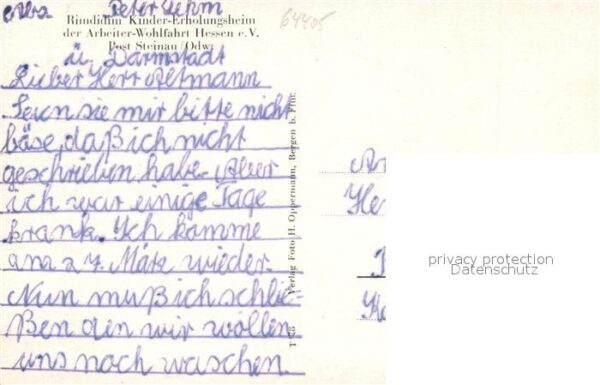 Peter Uehm
64405
Rimdidim Kinder-Erholungsheim
der Arbeiter-Wohlfahrt Hessen e.V.
Post Steinau/Odw.
ü. Darmstadt
Lieber Herr Altmann
Seien sie mir bitte nicht
böse, daß ich nicht
geschrieben habe. Aber
ich war einige Tage
krank. Ich komme
am 27. März wieder.
Nun muß ich schlie-
ßen den wir wollen
uns noch waschen.
Verlag Foto H. Oppermann, Bergen b. Ffm.
An
privacy protection
Datenschutz